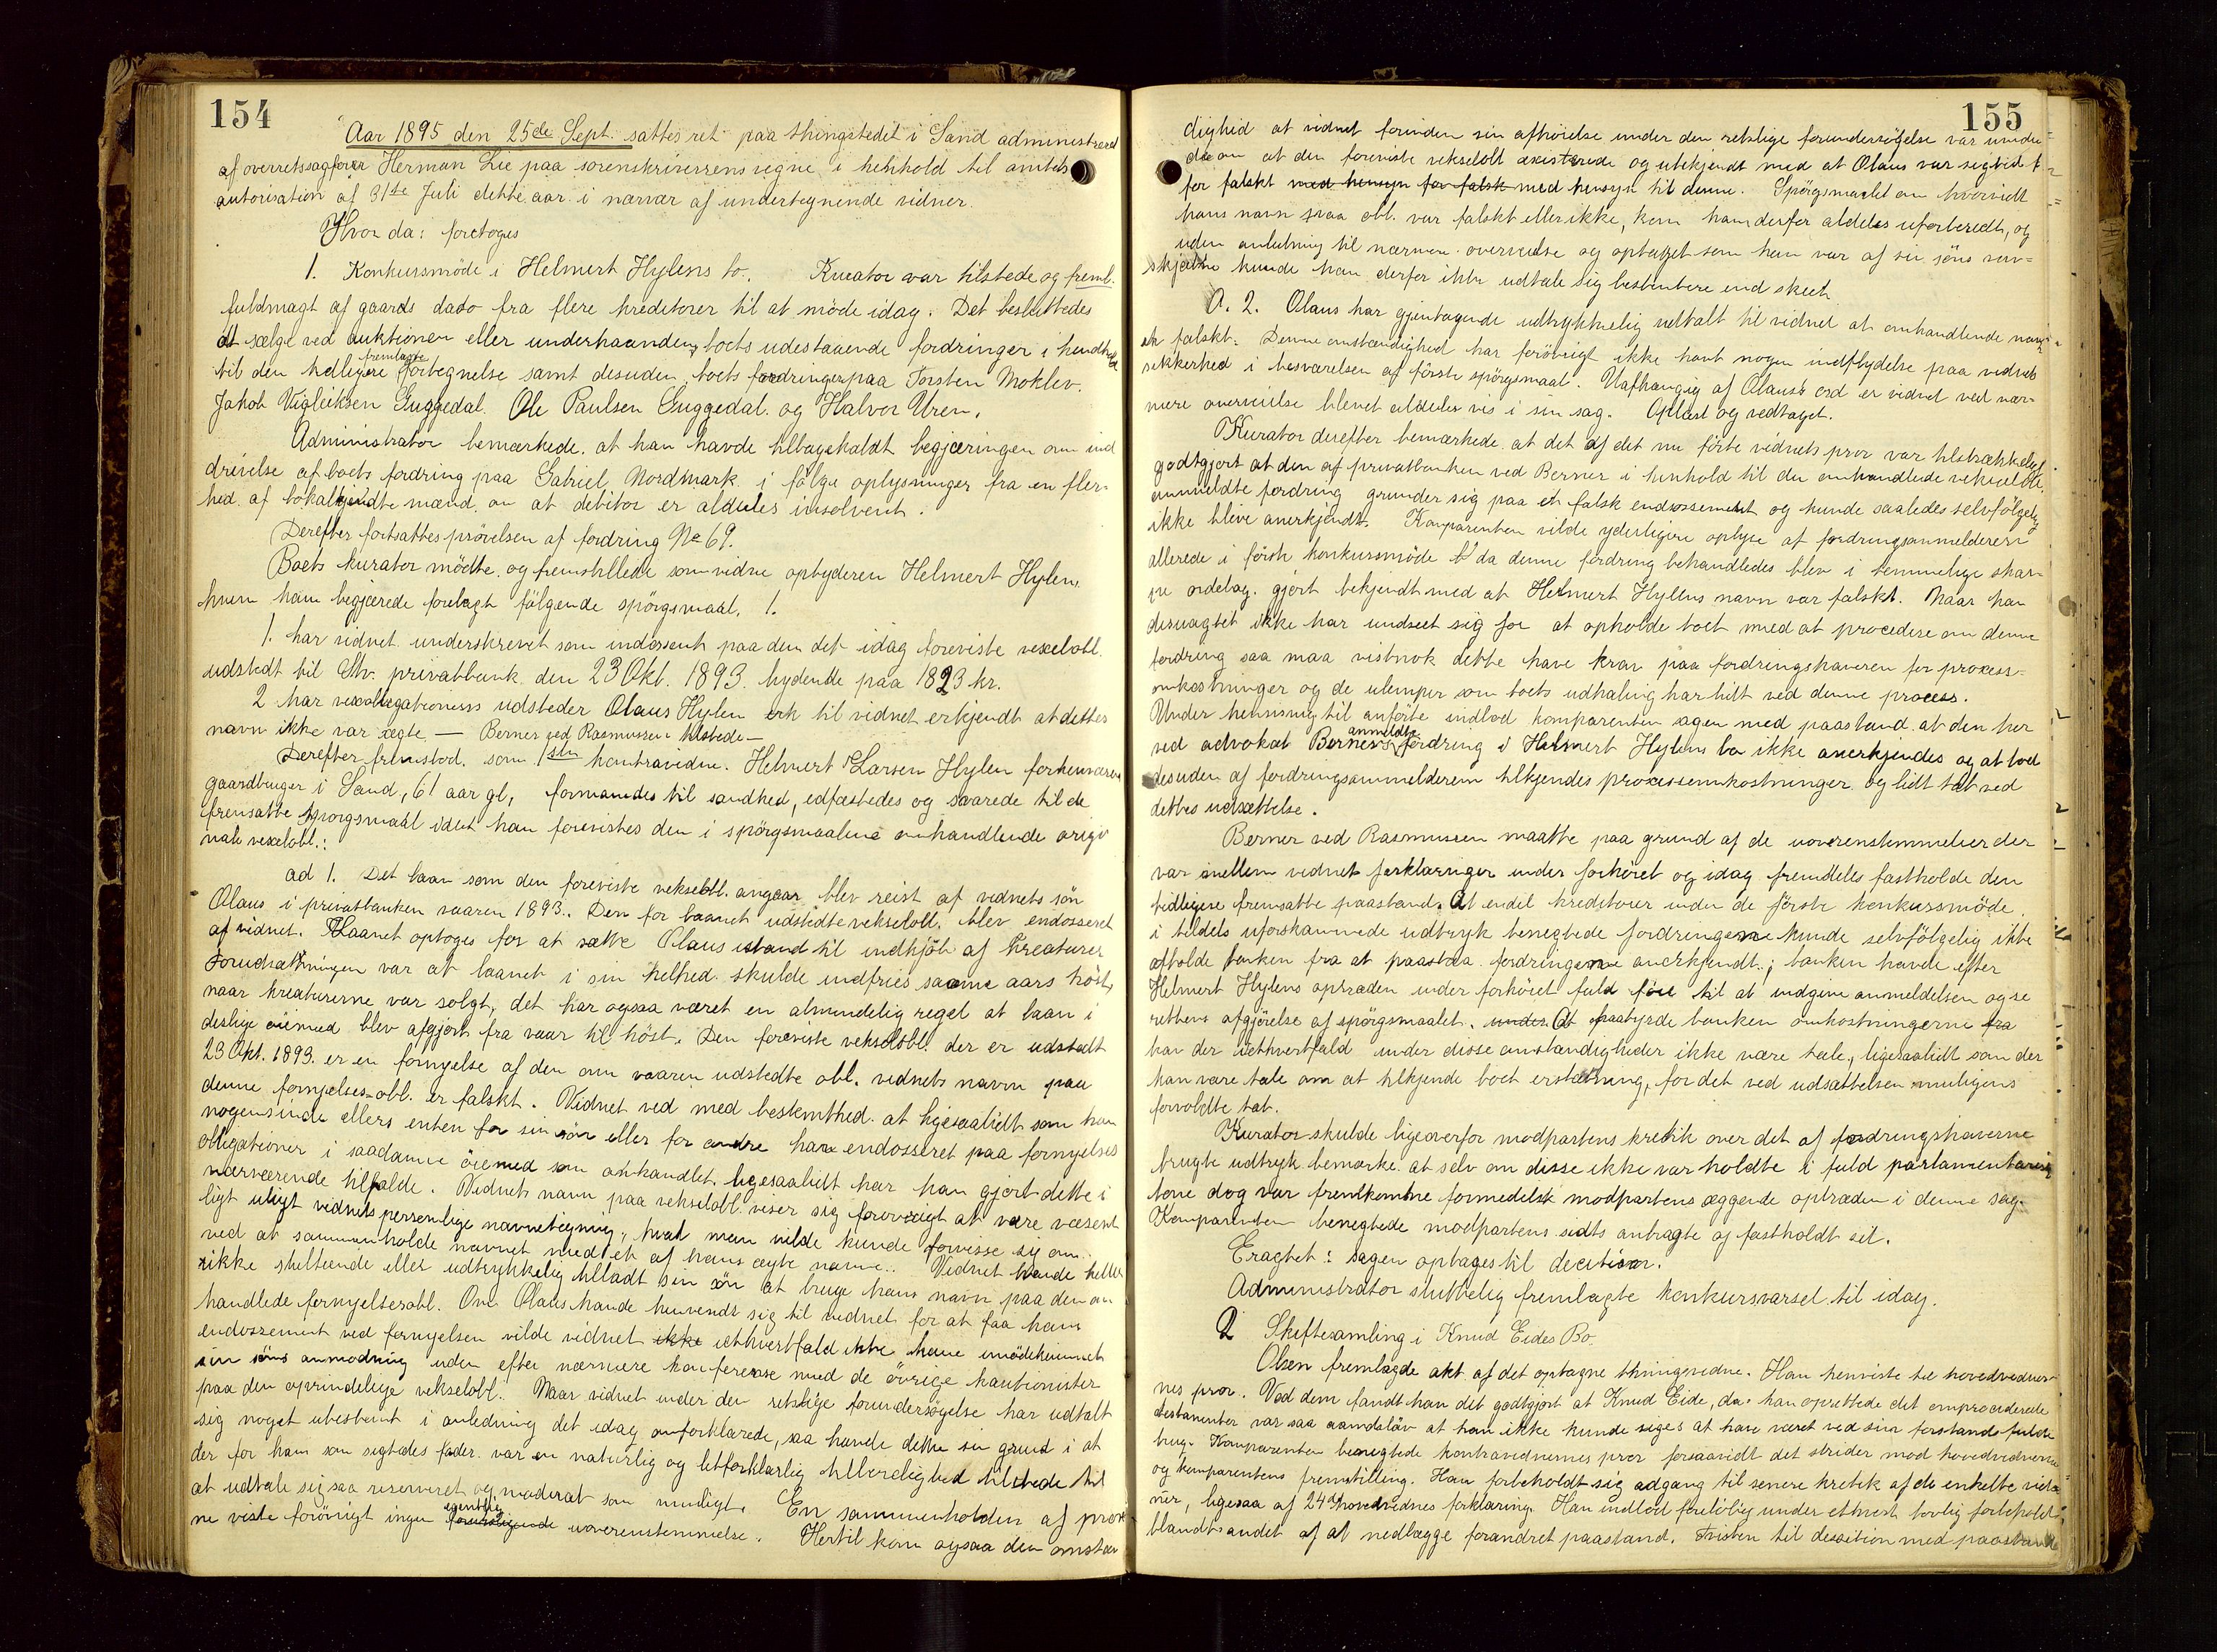 154
Aar 1895 den 25de Sept. sattes ret paa thingstedet i Sand administreret
af overretssagfører Herman Lie paa sorenskriverens vegne i henhold til amtets
autorisation af 31te Juli dette aar i nærvær af undertegnende vidner.
Hvor da: foretoges
1. Konkursmöde i Helmert Hylens bo. Kurator var tilstede og freml.
fuldmagt af gaards dato fra flere kreditorer til at möde idag. Det besluttedes
at sælge ved auktionen eller underhaanden, boets udestaaende fordringer i henhold
til den tidligere fremlagte fortegnelse samt desuden boets fordringer paa Torsten Moklev.
Jakob Vigleiksen Guggedal. Ole Paulsen Guggedal. og Halvor Uren.
Administrator bemærkede. at han havde tilbagekaldt begjæringen om ind
drivelse af boets fordring paa Gabriel Nordmark i fölge oplysninger fra en fler-
hed af lokalkjendte mænd. om at debitor er aldeles insolvent.
Derefter fortsattes prövelsen af fordring No 69.
Boets kurator mödte og fremstillede som vidne opbyderen Helmert Hylen,
hvem han begjærede forelagt fölgende spörgsmaal. 1.
1. har vidnet underskrevet som indossent paa den det idag foreviste vexelobl.
udstedt til Stv. privatbank den 23 Okt. 1893. lydende paa 1823 kr.
2 har vexelobligationens udsteder Olaus Hylen erk til vidnet erkjendt at dettes
navn ikke var ægte — Berner ved Rasmussen tilstede —
Derefter fremstod. som 1ste kontravidne. Helmert Larsen Hylen forhenværen
gaardbruger i Sand, 61 aar gl, formanedes til sandhed, edfæstedes og svarede til de
fremsatte spörgsmaal idet han forevistes den i spörgsmaalene omhandlende origi
nale vexelobl.:
ad 1. Det laan som den foreviste vekselobl. angaar blev reist af vidnets sön
Olaus i privatbanken vaaren 1893. Den for laanet udstedte vekselobl. blev endosseret
af vidnet. Laanet optoges for at sætte Olaus istand til indkjöb af kreaturer
Forudsætningen var at laanet i sin helhed skulde indfries samme aars höst,
naar kreaturerne var solgt, det har ogsaa været en almindelig regel at laan i
deslige öiemed blev afgjort fra vaar til höst. Den foreviste vekselobl. der er udstedt
23 Okt. 1893. er en fornyelse af den om vaaren udstedte obl. vidnets navn paa
denne fornyelses-obl. er falskt. Vidnet ved med bestemthed. at ligesaalidt som han
nogensinde ellers enten for sin sön eller for andre har endosseret paa fornyelses
obligationer i saadanne öiemed som omhandlet. ligesaalidt har han gjort dette i
nærværende tilfælde. Vidnets navn paa vekselobl. viser sig forövrigt at være væsent
ligt uligt vidnets personlige navnetegning, hvad man vilde kunde forvisse sig om
ved at sammenholde navnet med et af hans ægte navne.. Vidnet havde heller
ikke stiltiende eller udtrykkelig tilladt sin sön at bruge hans navn paa den om
handlede fornyelsesobl. Om Olaus havde henvendt sig til vidnet for at faa hans
endossement ved fornyelsen vilde vidnet ikke iethvertfald ikke have imödekommet
sin söns anmodning uden efter nærmere konferense med de övrige kautionister
paa den oprindelige vekselobl. Naar vidnet under den retslige forundersögelse har udtalt
sig noget ubestemt i anledning det idag omforklarede, saa havde dette sin grund i at
der for ham som sigtedes fader var en naturlig og letforklarlig tilböielighed tilstede til
at udtale sig saa reserveret og moderat som muligt. En sammenholden af prov
ne viste forövrigt ingen egentlig uoverenstemmelse. Hertil kom ogsaa den omstæn
155
dighed at vidnet forinden sin afhörelse under den retslige forundersögelse var uvide
de om at den foreviste vekselobl existerede og ubekjendt med at Olaus var sigtedet
for falskt med hensyn for falsk med hensyn til denne. Spörgsmaalet om hvorvidt
hans navn paa obl. var falskt eller ikke, kom ham derfor aldeles uforberedt, og
uden anledning til nærmere overveielse og optaget som han var af sin söns van-
skjæbne kunde han derfor ikke udtale sig bestemtere end skeet.
A. 2. Olaus har gjentagende udtrykkelig udtalt til vidnet at omhandlende navn
er falskt. Denne omstændighed har forövrigt ikke havt nogen indflydelse paa vidnets
sikkerhed i besvarelsen af förste spörgsmaal. Uafhængig af Olaus's ord er vidnet ved nær-
mere overveielse blevet aldeles vis i sin sag. Oplæst og vedtaget.
Kurator derefter bemærkede at det af det nu förte vidnets prov var tilstrækkeligt
godtgjort at den af privatbanken ved Berner i henhold til den omhandlede vekselobl.
anmeldte fordring grunder sig paa et falsk endossement og kunde saaledes selvfölgelig
ikke blive anerkjendt. Komparenten vilde yderligere oplyse at fordringsanmelderen
allerede i förste konkursmöde da denne fordring behandledes blev i temmelige skar-
pe ordelag. gjort bekjendt med at Helmert Hylens navn var falskt. Naar han
desuagtet ikke har undseet sig for at opholde boet med at procedere om denne
fordring saa maa vistnok dette have krav paa fordringshaveren for process-
omkostninger og de ulemper som boets udhaling har lidt ved denne process.
Under henvisning til anförte indlod komparenten sagen med paastand at den her
ved advokat Berner anmeldte fordring i Helmert Hylens bo ikke anerkjendes og at boet
desuden af fordringsanmelderen tilkjendes procesomkostninger og lidt tab ved
dettes udsættelse.
Berner ved Rasmussen maatte paa grund af de uoverenstemmelser der
var mellem vidnets forklaringer under forhöret og idag fremdeles fastholde den
tidligere fremsatte paastand. At endel kreditorer under de förste konkursmöde.
i tildels uforskammede udtryk benegtede fordringerne kunde selvfölgelig ikke
afholde banken fra at paastaa fordringerne anerkjendt; banken havde efter
Helmert Hylens optræden under forhöret fuld föie til at indgive anmeldelsen og se
rettens afgjörelse af spörgsmaalet. under. At paabyrde banken omkostningerne fra
kan der iethvertfald under disse omstændigheder ikke være tale, ligesaalidt som der
kan være tale om at tilkjende boet erstatning, for det ved udsættelsen muligens
forvoldte tab.
Kurator skulde ligeoverfor modpartens kretik over det af fordringshaverne
brugte udtryk bemærke. at selv om disse ikke var holdte i fuld parlamentarisk
tone dog var fremkomne formedelst modpartens æggende optræden i denne sag.
Komparenten benegtede modpartens sidts antragte og fastholdt sit.
Eragtet: sagen optages til decision.
Administrator sluttelig fremlagte konkursvarsel til idag.
2 Skiftesamling i Knud Eides Bo.
Olsen fremlagde akt af det optagne thingsvidne. Han henviste til hovedvidner-
nes prov. Ved dem fandt han det godtgjort at Knud Eide, da han oprettede det omprocederede
testamenter var saa aandslöv at han ikke kunde siges at have været ved sin forstands fulde
brug. Komparenten benegtede kontravidnernes prov forsaavidt det strider mod hovedvidnerne
og komparentens fremstilling. Han forbeholdt sig adgang til senere kretik af de enkelte vid-
ner, ligesaa af 24de hovedvidnes forklaring. Han indlod foreløbig under ethvert lovlig forbehold
blandt andet af at nedlægge forandret paastand. Tvisten til desition med paastand